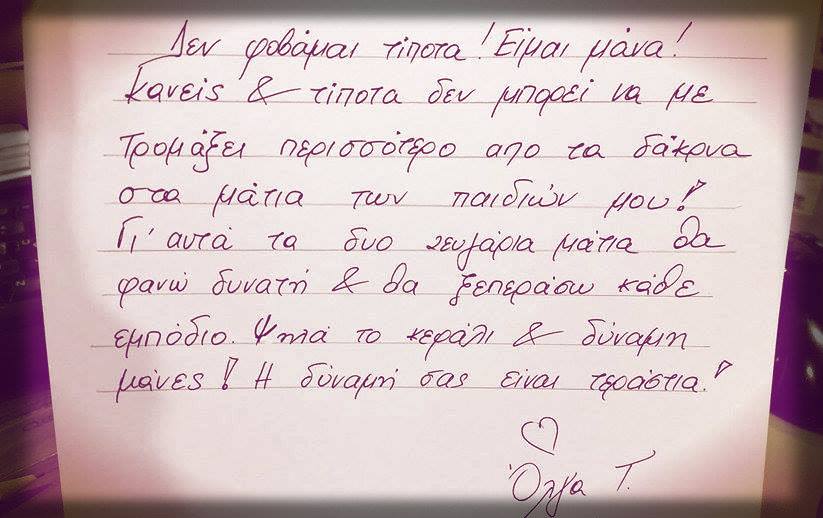 Δεν φοβάμαι τίποτα! Είμαι μάνα!
Κανείς & τίποτα δεν μπορεί να με
τρομάξει περισσότερο απο τα δάκρυα
στα μάτια των παιδιών μου!
Γι' αυτά τα δυο ζευγάρια μάτια θα
φανώ δυνατή & θα ξεπεράσω κάθε
εμπόδιο. Ψηλά το κεφάλι & δύναμη
μάνες! Η δύναμή σας είναι τεράστια!
Όλγα Τ.